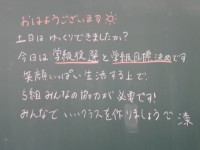 おはようございます
土日はゆっくりできましたか?
今日は学級役選と学級目標決めです
笑顔いっぱい生活する上で、
5組みんなの協力が必要です!
みんなでいいクラスを作りましょう